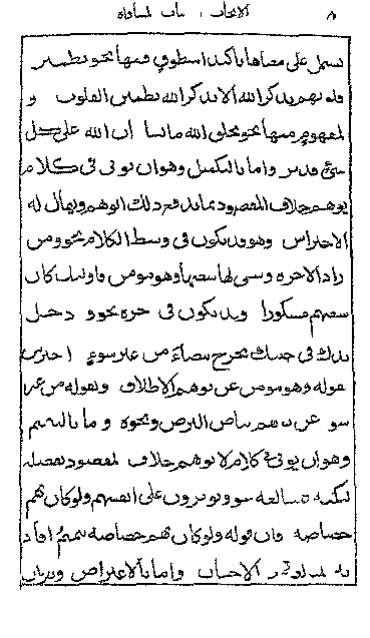 باب المساواة
تشمل على معناها تأكيدا لمنطوق ومنها نحو تطمئن
قلوبهم بذكر الله الا بذكر الله تطمئن القلوب و
لمفهوم ومنها نحو يخلق الله ما يشا ان الله على كل
شيء قدير واما بالتكميل وهو ان يوتى فى كلام
يوهم خلاف المقصود بما يدفع ذلك الوهم ويقال له
الاحتراس وهو قد يكون فى وسط الكلام نحو ومن
راد الاخره وسعى لها سعيها وهو مومن فاوليك كان
سعيهم مشكورا وقد يكون فى اخره نحو و دخل
يدك فى جيبك تخرج بيضاء من غير سوء احترس
بقوله وهو مومن عن توهم الاطلاق وبقوله من غير
سو عن توهم بياض البرص ونحوه و ما بالتتميم
وهو ان يوتى فى كلام لا يوهم خلاف لمقصود بفضلة
لنكتة نحو ويوثرون على انفسهم ولو كان بهم
خصاصة فان قوله ولو كان بهم خصاصة تتميم افاد
به الاحسان واما بالاعتراض